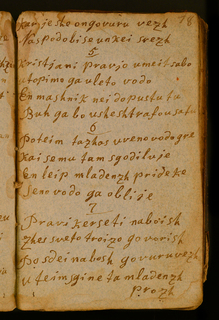 78
kai je sho on govuru vezh
Nas podobi se un kei srezh
5
Kristjani pravjo umeit sabo
utopimo ga v leto vodo
En mashnik nei dopustu tu
Buh ga bo usheshtrafou satu
6
Poteim tazhos uveno vodo gre
kai se mu tam sgodiluje
En leip mladenzh pride ke
Seno vodo ga oblije
7
Pravi kerseti naboish
Zhes sveto troizo govorish
Posdei nabosh govuru vezh
Vteimsgine ta mladenzh
Prozh